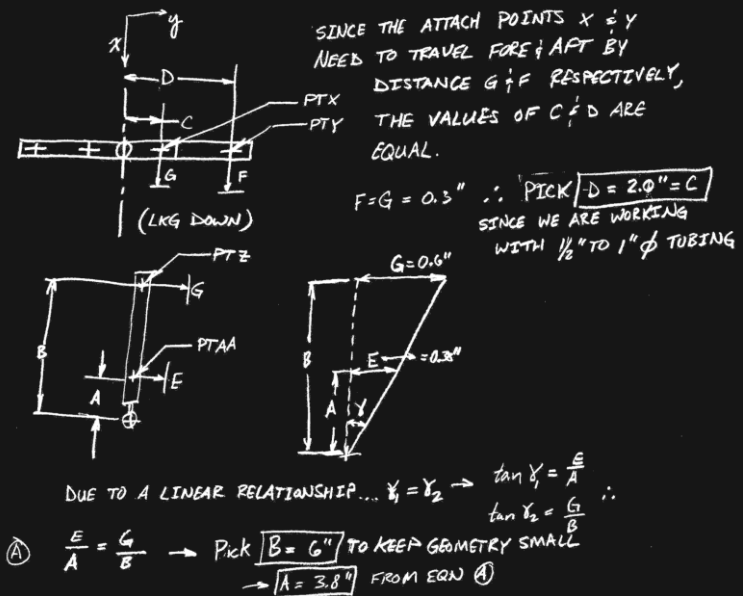 y
x
D
C
PTX
PTY
G
F
(LKG DOWN)
SINCE THE ATTACH POINTS X & Y
NEED TO TRAVEL FORE & AFT BY
DISTANCE G & F RESPECTIVELY,
THE VALUES OF C & D ARE
EQUAL.
F=G = 0.3" ∴ PICK D = 2.0" = C
SINCE WE ARE WORKING
WITH 1/2" TO 1" Ø TUBING
PTZ
G
B
PTAA
A
E
G=0.6"
B
E =0.38"
A
γ
DUE TO A LINEAR RELATIONSHIP... γ₁ = γ₂ → tan γ₁ = E/A
tan γ₂ = G/B ∴
Ⓐ E/A = G/B → Pick B = 6" TO KEEP GEOMETRY SMALL
→ A = 3.8" FROM EQN Ⓐ